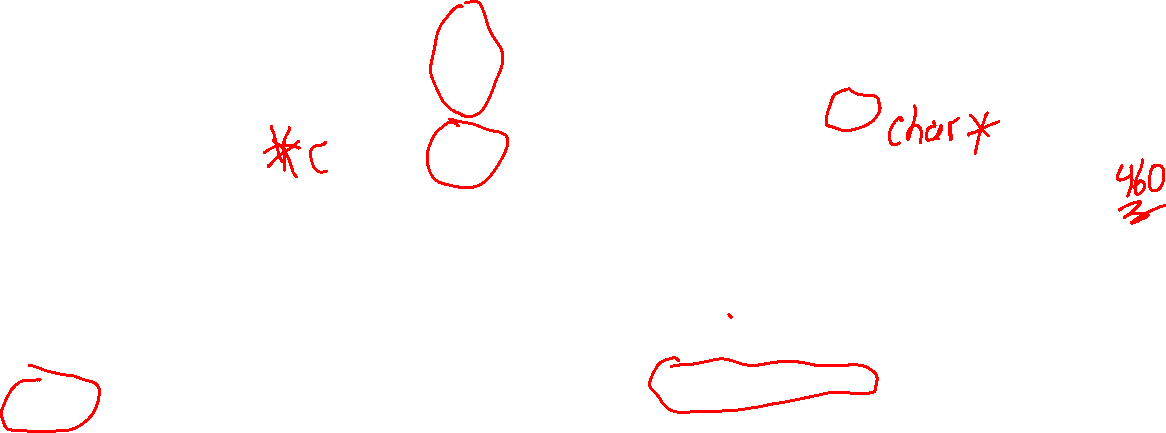 *c
char*
460